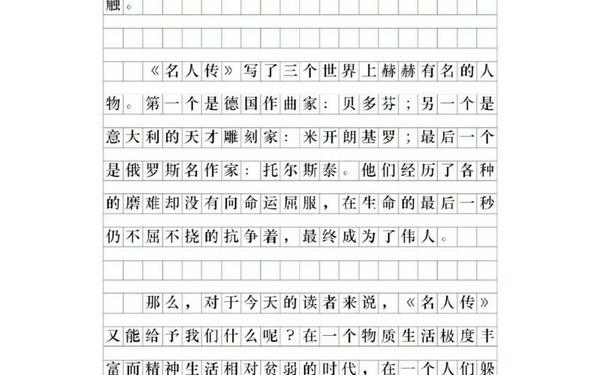 触。
《名人传》写了三个世界上赫赫有名的人
物。第一个是德国作曲家：贝多芬；另一个是
意大利的天才雕刻家：米开朗基罗；最后一个
是俄罗斯名作家：托尔斯泰。他们经历了各种
的磨难却没有向命运屈服，在生命的最后一秒
仍不屈不挠的抗争着，最终成为了伟人。
那么，对于今天的读者来说，《名人传》
又能给予我们什么呢？在一个物质生活极度丰
富而精神生活相对贫弱的时代，在一个人们躲